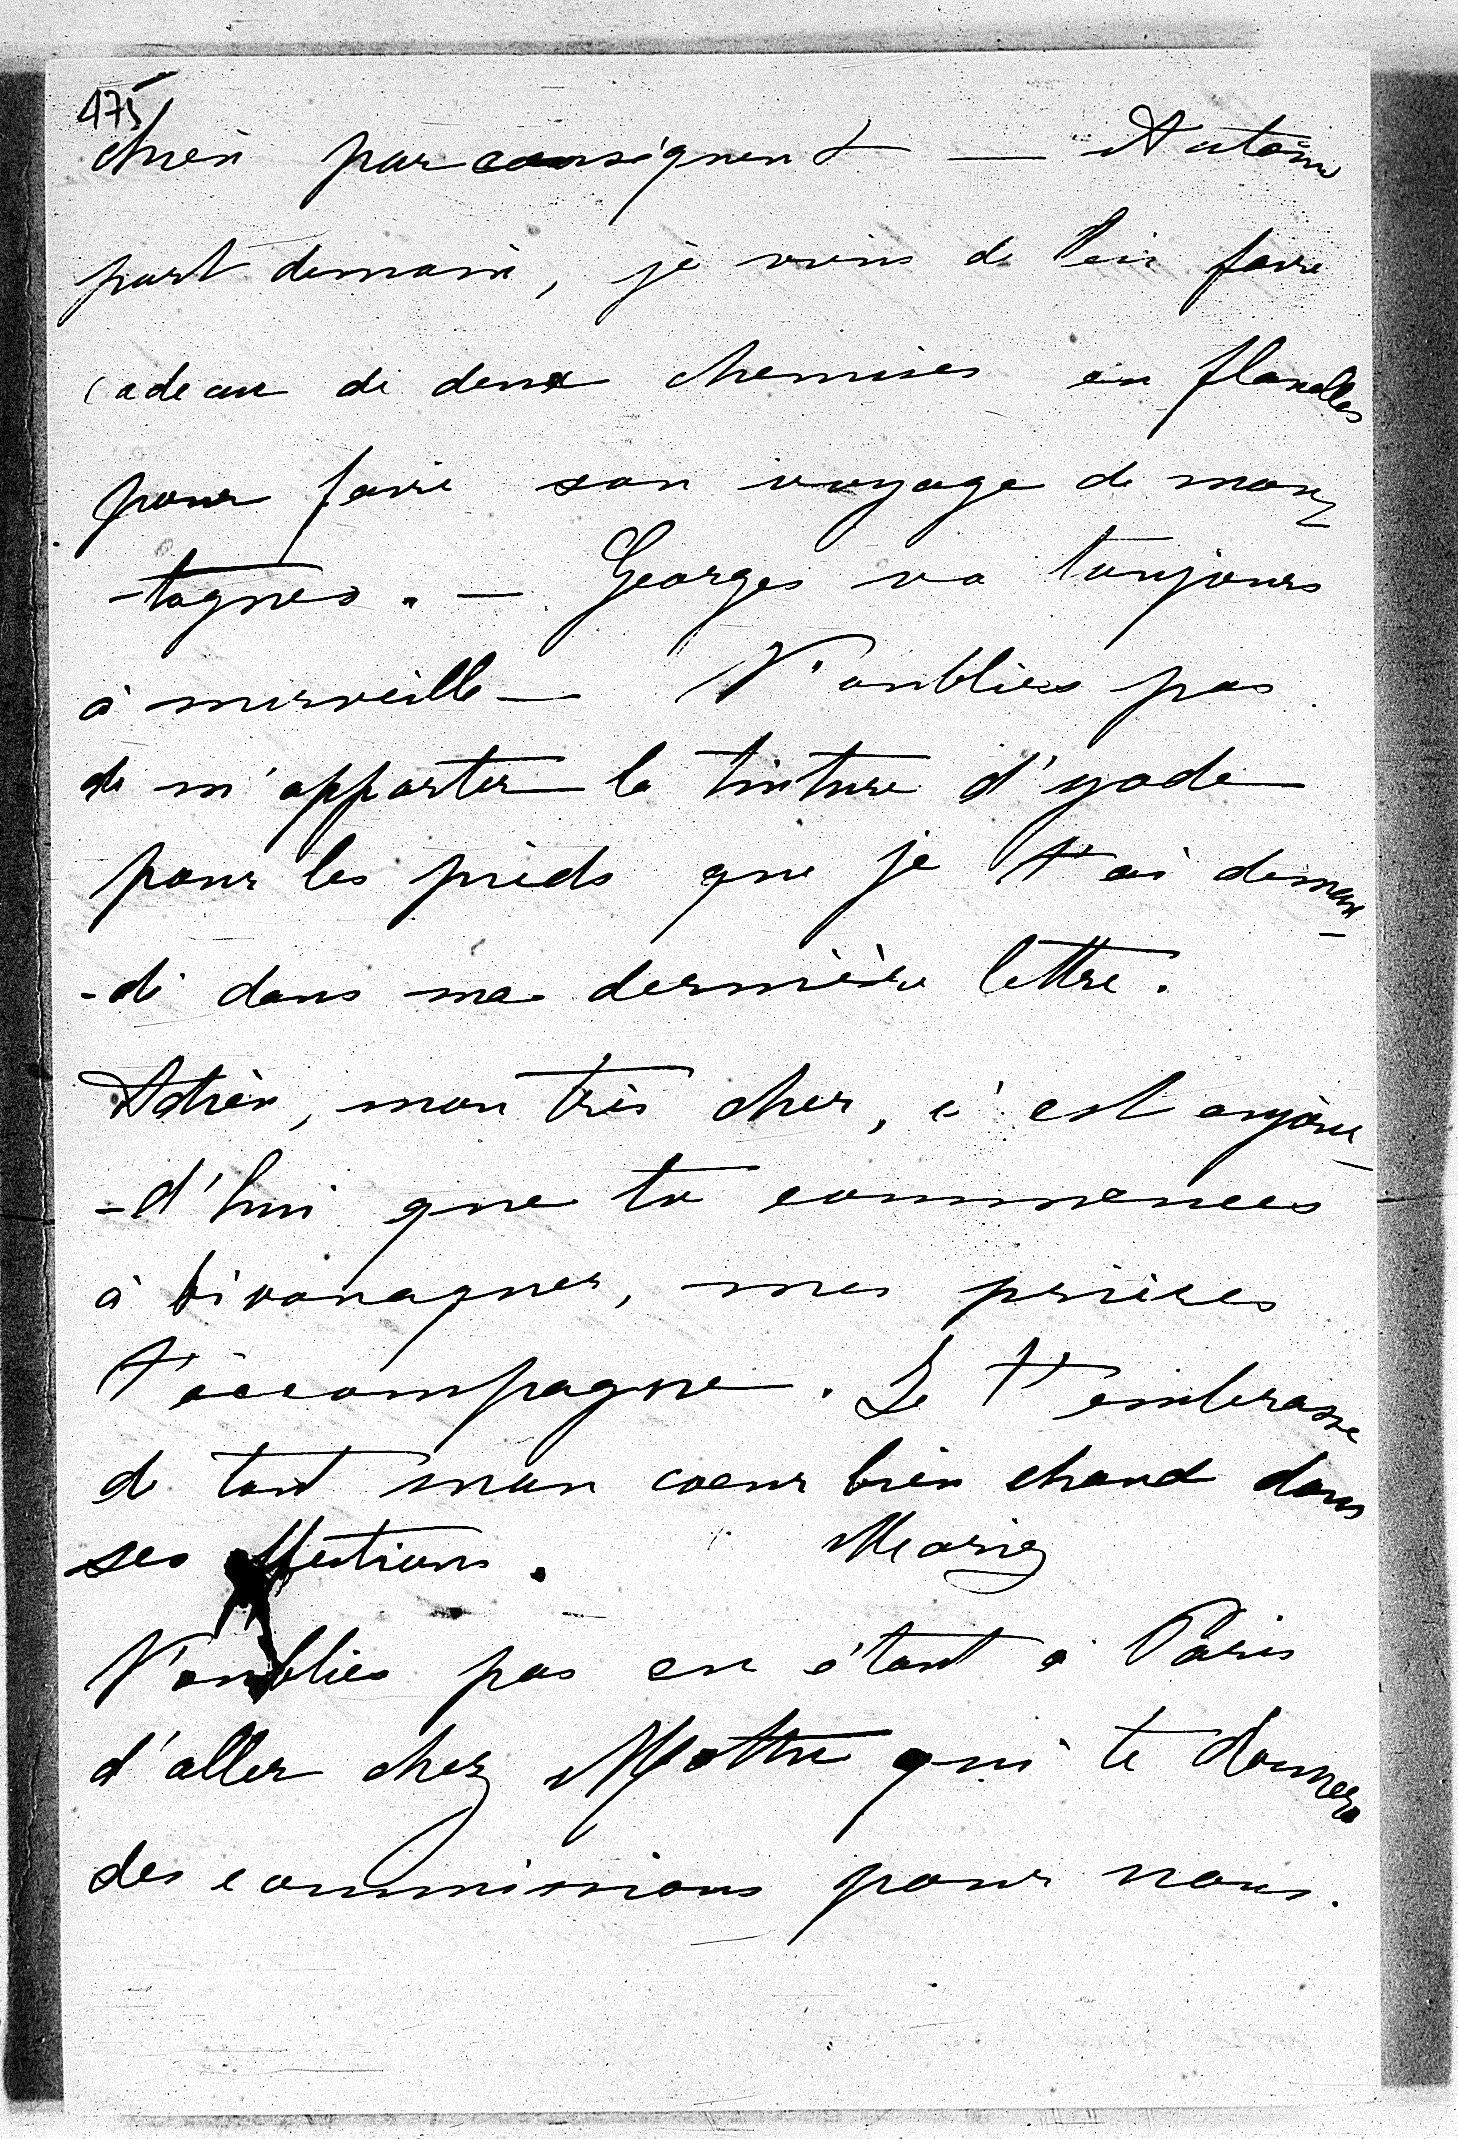 475
chien par consignent — Antoine
part demain, je viens de lui faire
cadeau de deux chemises en flanelles
pour faire son voyage de mon
-tagnes. — Georges va toujours
à merveille — N'oublies pas
de m'apporter la tinture d'yode
pour les pieds que je t'ai deman-
-dé dans ma dernière lettre.
Adrien, mon très cher, c'est aujour-
-d'hui que tu commences
à bivouaquer, mes prières
t'accompagne. Je t'embrasse
de tout mon coeur bien chaud dans
ses ffections. Marie
N'oublies pas en étant à Paris
d'aller chez Mottu qui te donnera
des commissions pour nous.